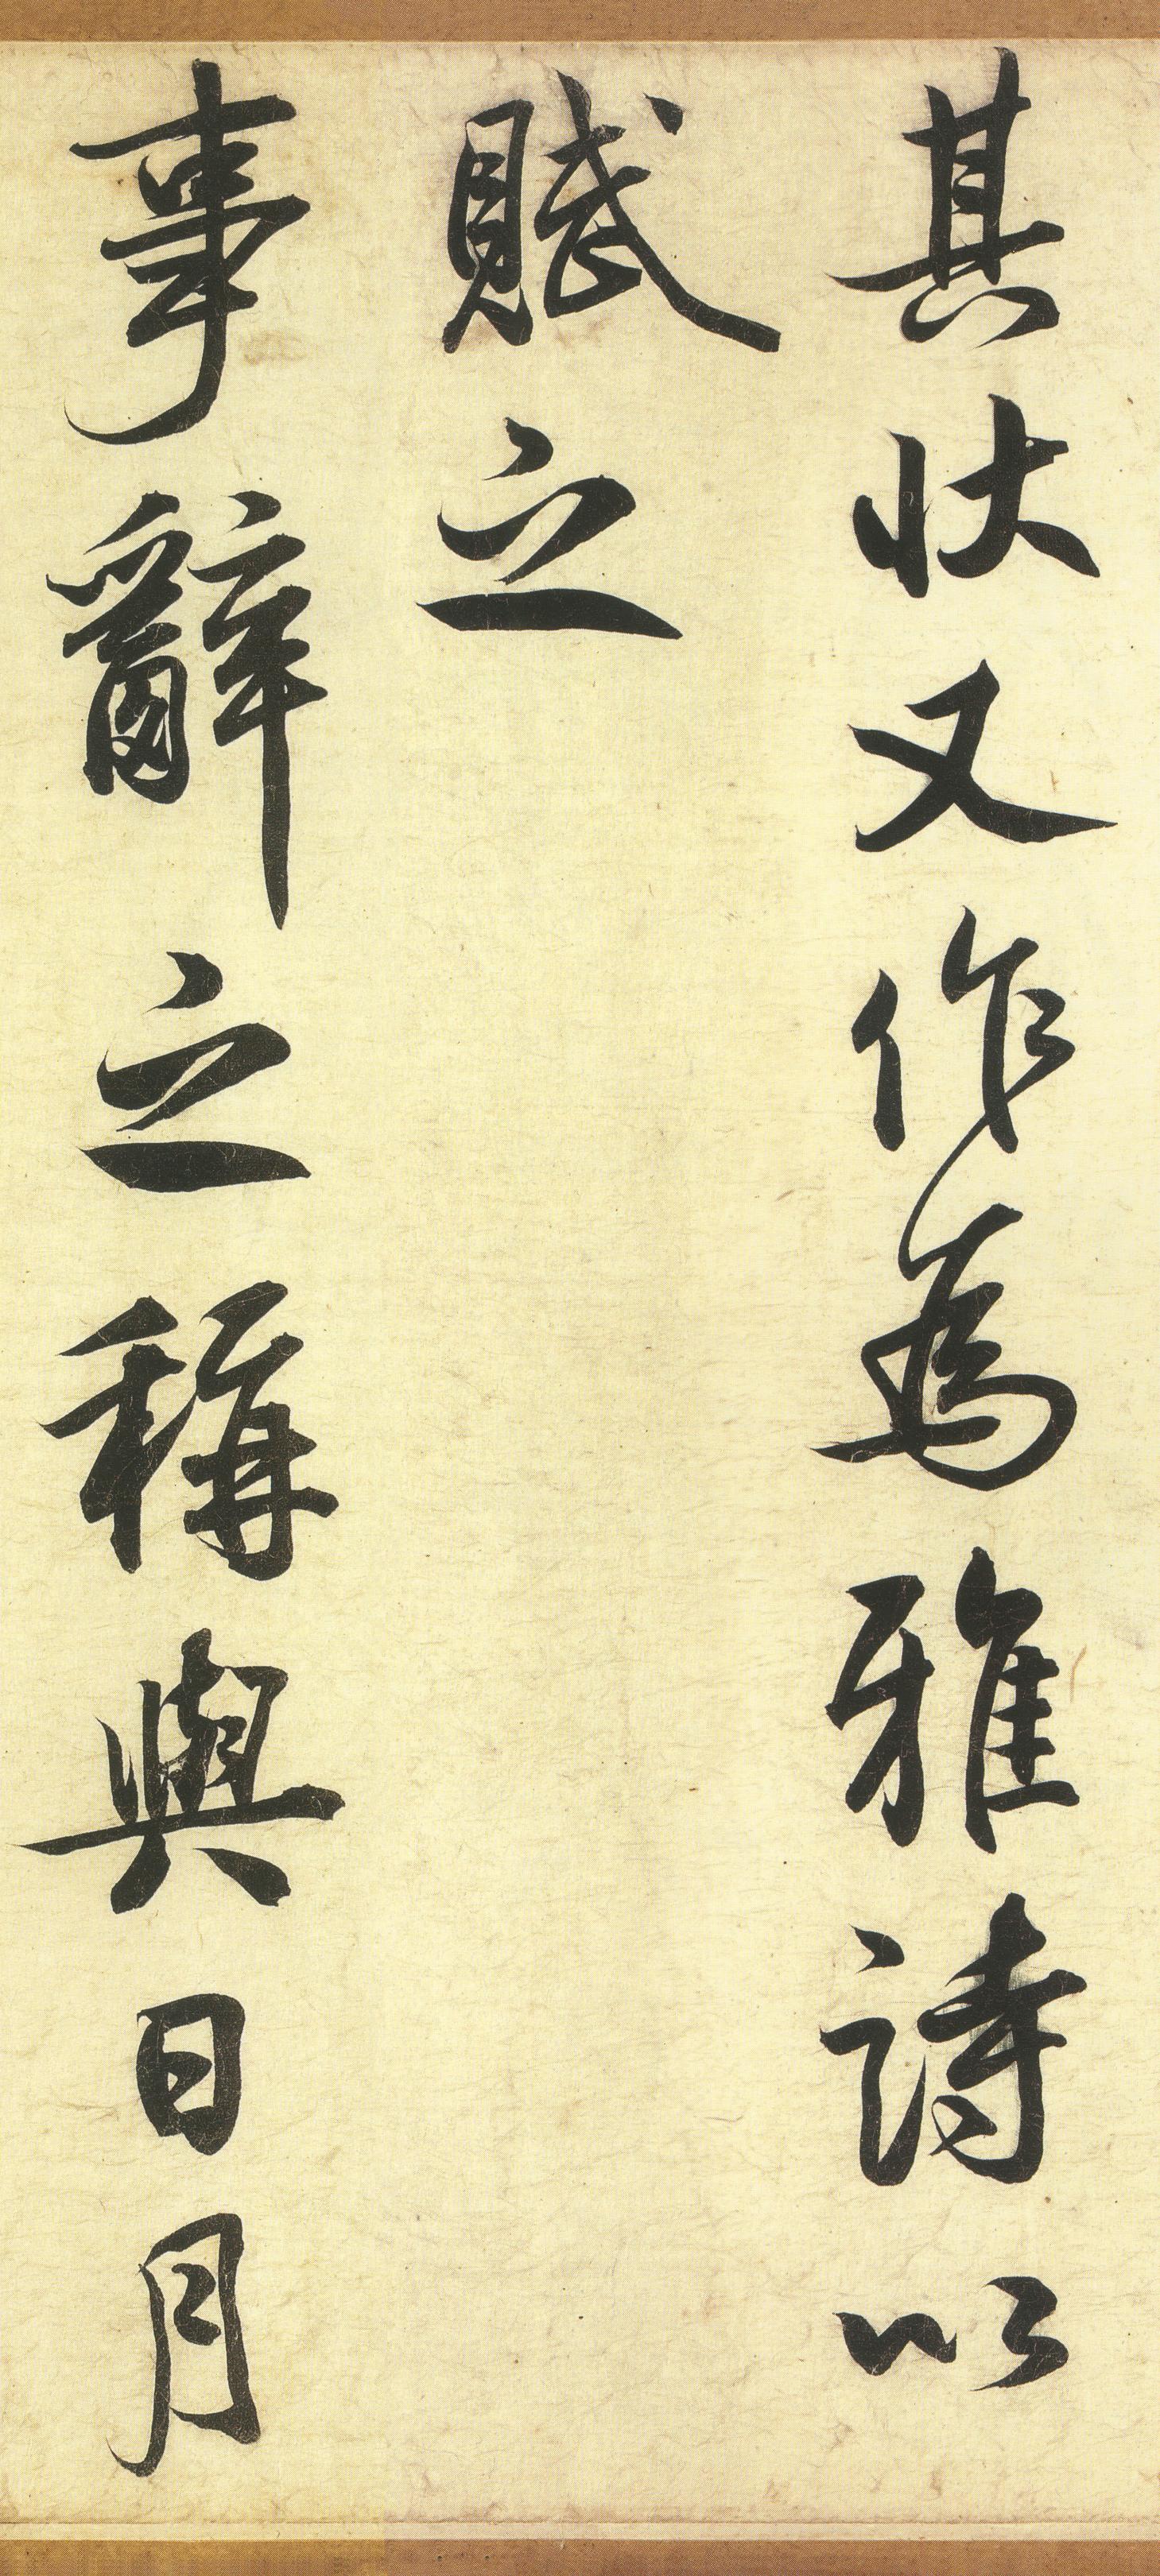 其状又作為雅詩以
賦之
事辭之稱與日月